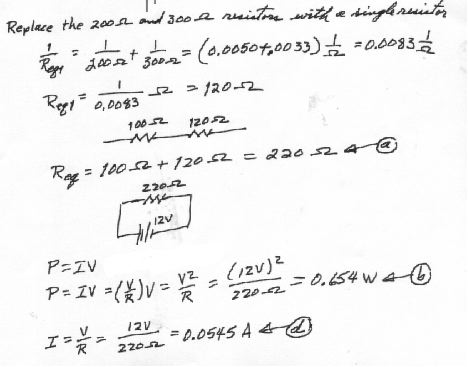 Replace the 200Ω and 300Ω resistors with a single resistor
1/Req1 = 1/200Ω + 1/300Ω = (0.0050+,0033) 1/Ω = 0.0083 1/Ω
Req1 = 1/0,0083 Ω = 120Ω
100Ω 120Ω
Req = 100Ω + 120Ω = 220Ω ← (a)
220Ω
12V
P=IV
P= IV =(V/R)V = V²/R = (12V)²/220Ω = 0.654 W ← (b)
I = V/R = 12V/220Ω = 0.0545 A ← (d)